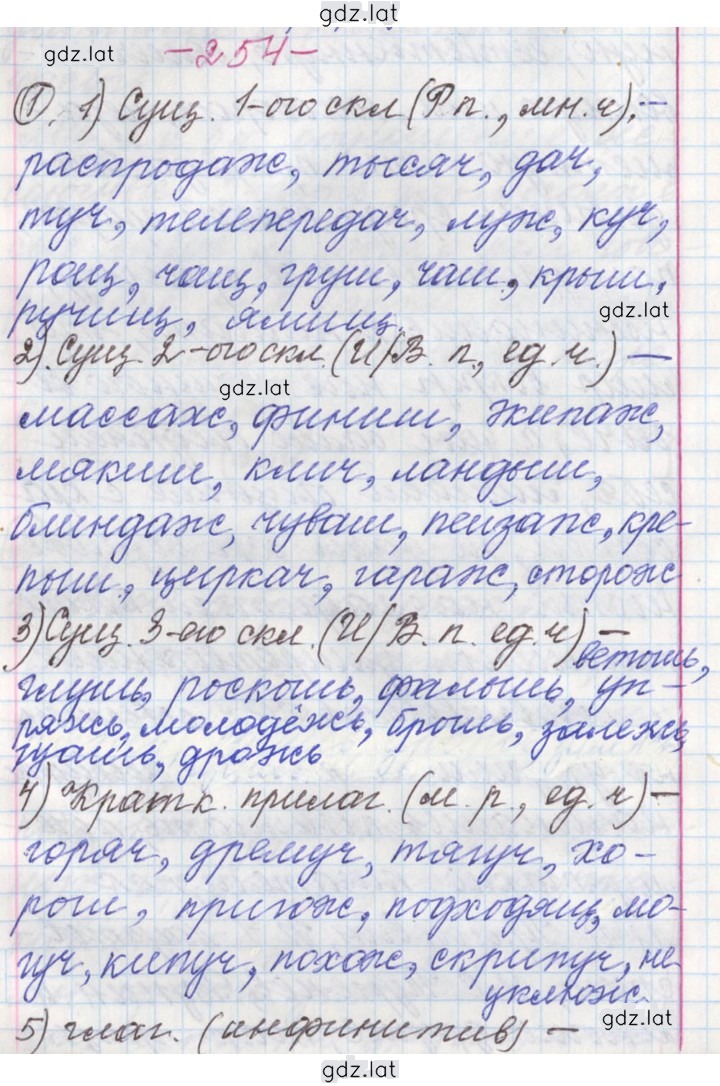 gdz.lat
gdz.lat
-254-
①. 1) Сущ. 1-ого скл (Р п., мн. ч): -
распродаж, тысяч, дач,
туч, телепередач, луж, куч,
рощ, чащ, груш, чаш, крыш,
gdz.lat
ручищ, ямищ.
2). Сущ 2-ого скл. (И/В. п., ед. ч.) —
gdz.lat
массаж, финиш, экипаж,
мякиш, клич, ландыш,
блиндаж, чуваш, пейзаж, кре-
пыш, циркач, гараж, сторож
3) Сущ. 3-ого скл. (И/В. п. ед. ч) —
ветошь,
глушь, роскошь, фальшь, уп-
ряжь, молодёжь, брошь, залежь,
гуашь, дрожь
4) Кратк. прилаг. (м. р., ед. ч) —
горяч, дремуч, тягуч, хо-
рош, пригож, подходящ, мо-
гуч, кипуч, похож, скрипуч, не
уклюж.
5) глаг. (инфинитив) —
gdz.lat
gdz.lat